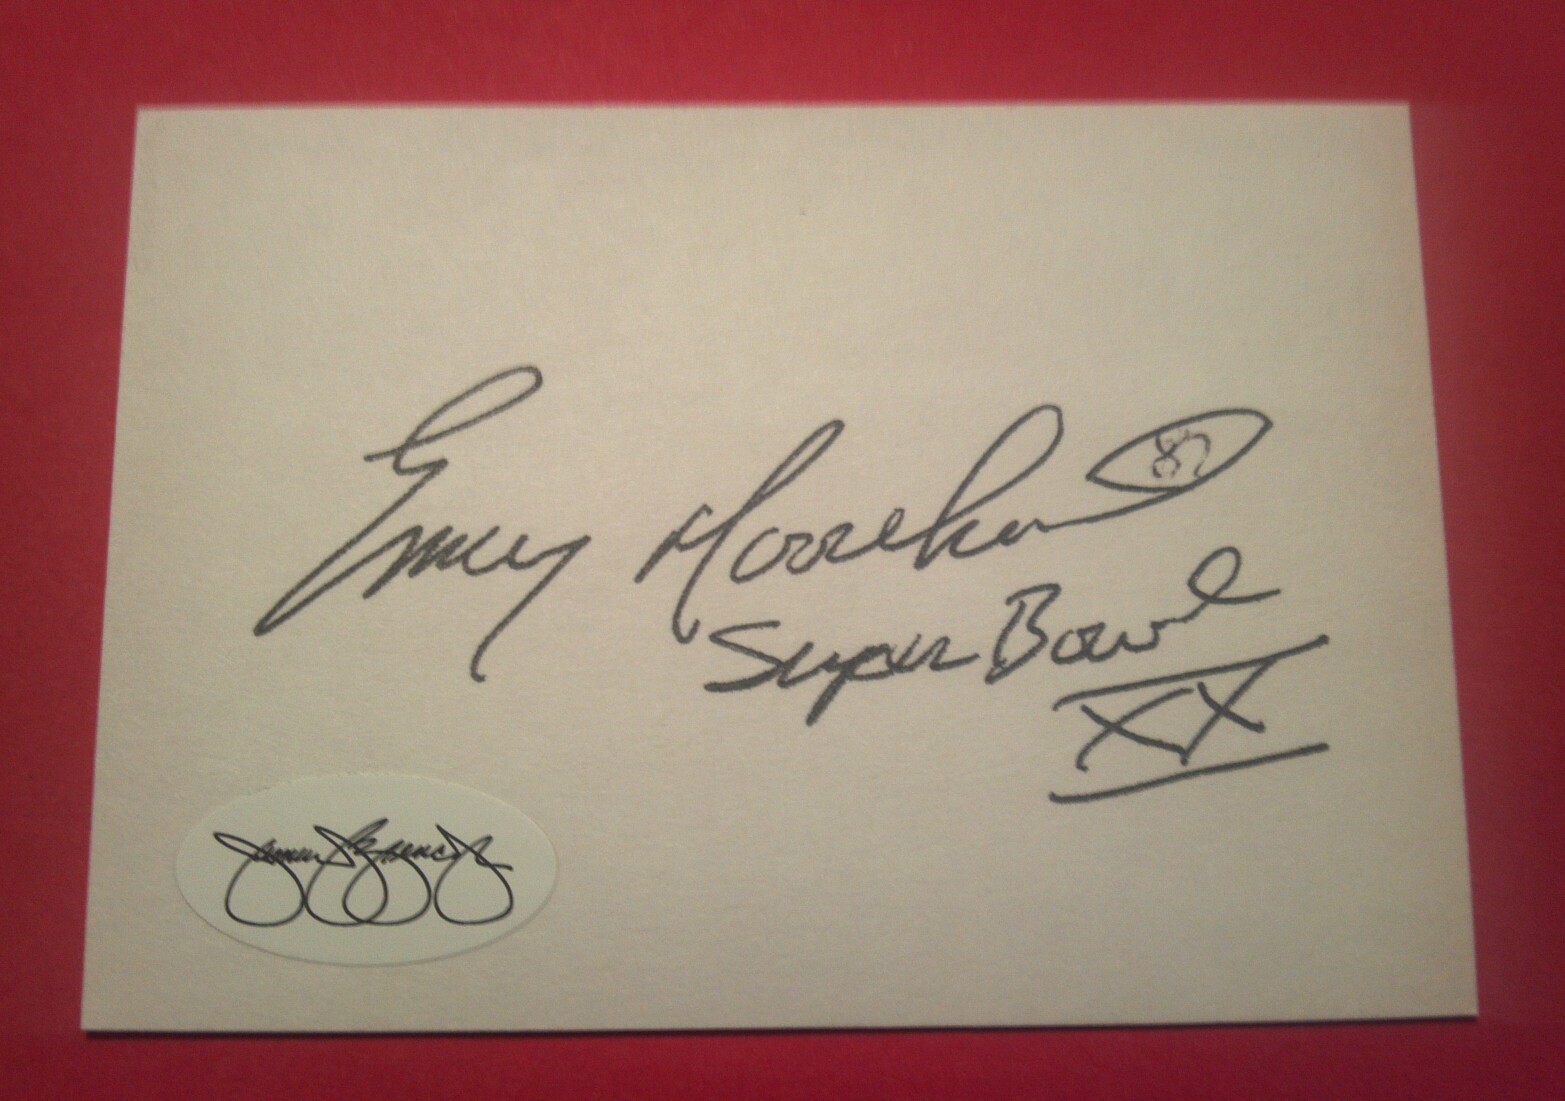 Emery Moorehead 87
Super Bowl
XX